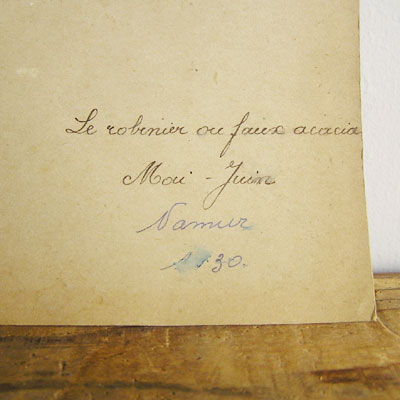 Le robinier ou faux acacia
Mai - Juin
Namur
30.